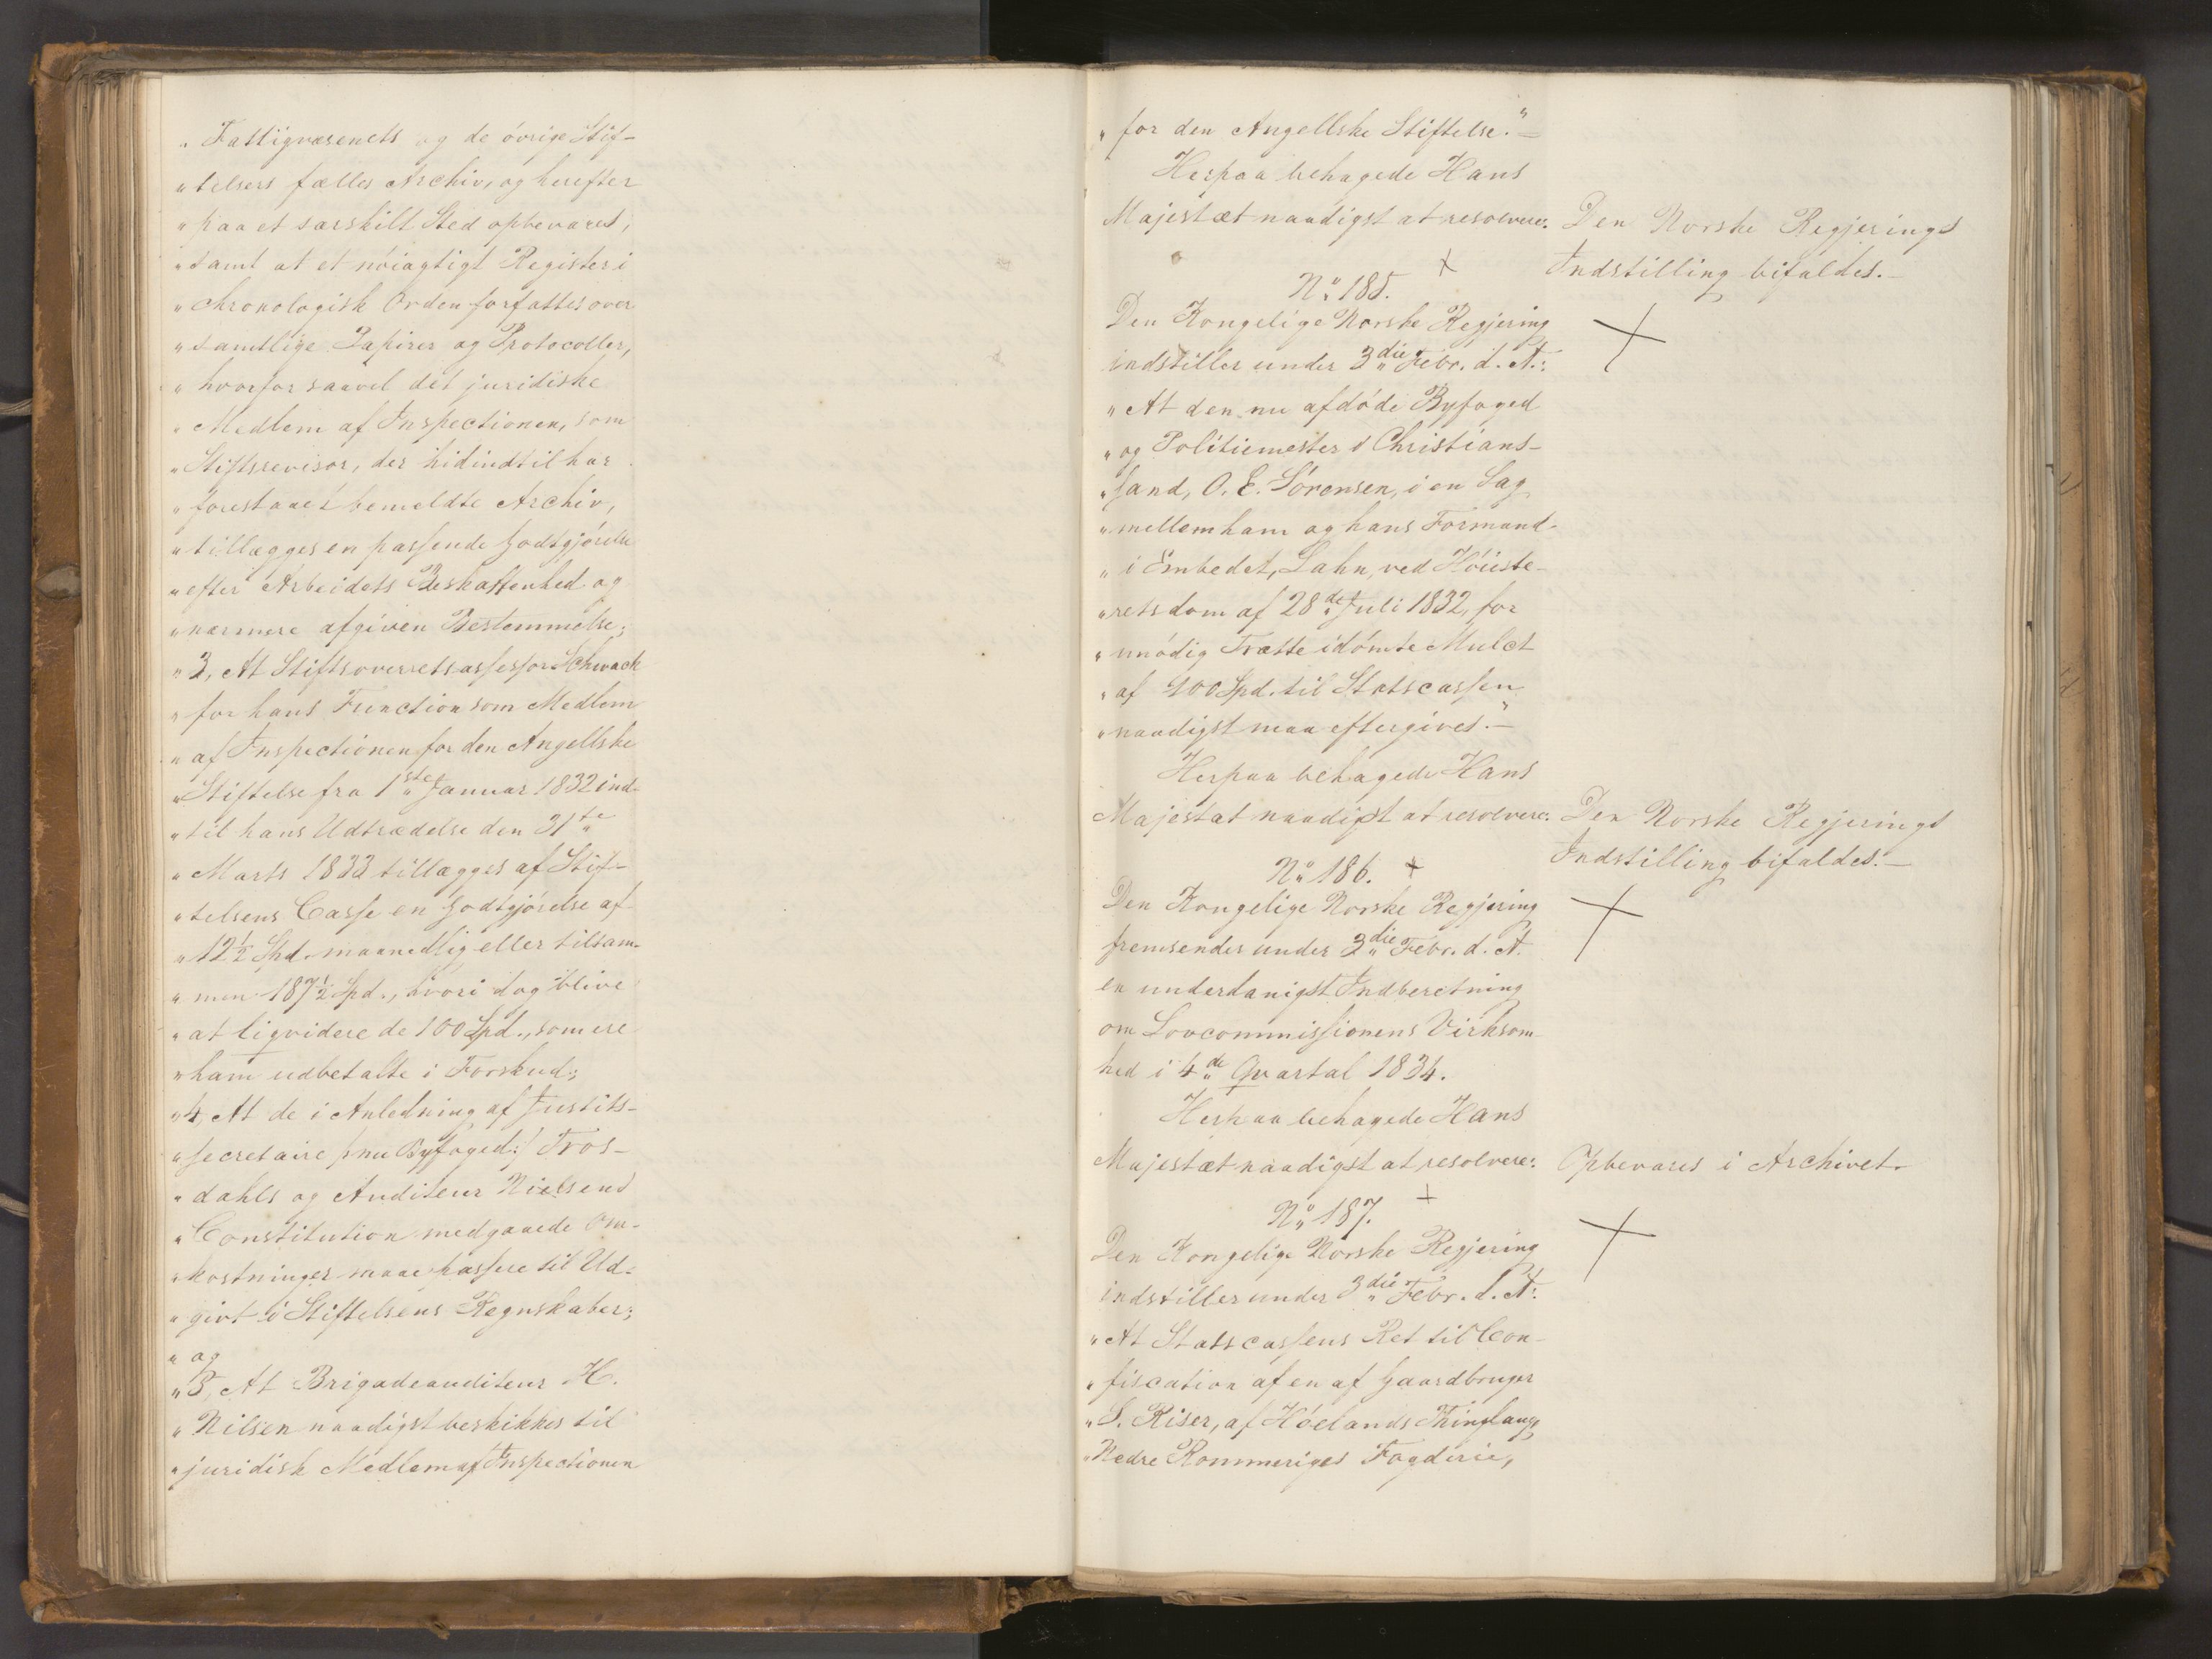 „Fattigvæsenets og de óvrige Stif-
„telsers fælles Archiv, og herefter
„paa et særskilt Sted opbevares,
„samt at et nóiagtigt Register i
„chronologisk Orden forfattes over
„samtlige Papirer og Protocoller,
„hvorfor saavel det juridiske
„Medlem af Inspectionen, som
„Stiftsrevisor, der hidindtil har
„forestaaet bemeldte Archiv,
„tillægges en passende Godtgjórelse
„efter Arbeidets Beskaffenhed og
„nærmere afgiven Bestemmelse;
„3, At Stiftsoverretsassessor Schwach
„for hans Function som Medlem
„af Inspectionen for den Angellske
„Stiftelse fra 1ste Januar 1832 ind-
„til hans Udtrædelse den 31te
„Marts 1833 tillægges af Stif-
„telsens Casse en Godtgjórelse af
„12½ Spd. maanedlig eller tilsam-
„men 187½ Spd., hvori dog blive
„at liqvidere de 100 Spd., som ere
„ham udbetalte i Forskud;
„4, At de i Anledning af Justits-
„secretaire /:nu Byfoged:/ Tros-
„dahls og Auditeur Nielsens
„Constitution medgaaede Om-
„kostninger maae passere til Ud-
„givt i Stiftelsens Regnskaber;
„og
„5, At Brigadeauditeur H.
„Nilsen naadigst beskikkes til
„juridisk Medlem af Inspectionen
„for den Angellske Stiftelse.“—
Herpaa behagede Hans
Majestæt naadigst at resolvere: Den Norske Regjerings
Indstilling bifaldes.—
No 185.
Den Kongelige Norske Regjering
indstiller under 3die Febr. d. A.:
„At den nu afdóde Byfoged
„og Politiemester i Christians-
„sand, O. E. Sórensen, i en Sag
„mellem ham og hans Formand
„i Embedet, Lahn, ved Hóieste-
„retsdom af 28de Juli 1832, for
„unódig Trætte idómte Mulct
„af 100 Spd. til Statscassen
„naadigst maa eftergives.“—
Herpaa behagede Hans
Majestæt naadigst at resolvere: Den Norske Regjerings
Indstilling bifaldes.—
No 186.
Den Kongelige Norske Regjering
fremsender under 3die Febr. d. A.
en underdanigst Indberetning
om Lovcommissionens Virksom
hed i 4de Qvartal 1834.
Herpaa behagede Hans
Majestæt naadigst at resolvere: Opbevares i Archivet.
No 187.
Den Kongelige Norske Regjering
indstiller under 3die Febr. d. A.:
„At Statscassens Ret til Con-
„fiscation af en af Gaardbruger
„S. Riser, af Hóelands Thinglaug,
„Nedre Rommeriges Fogderie,